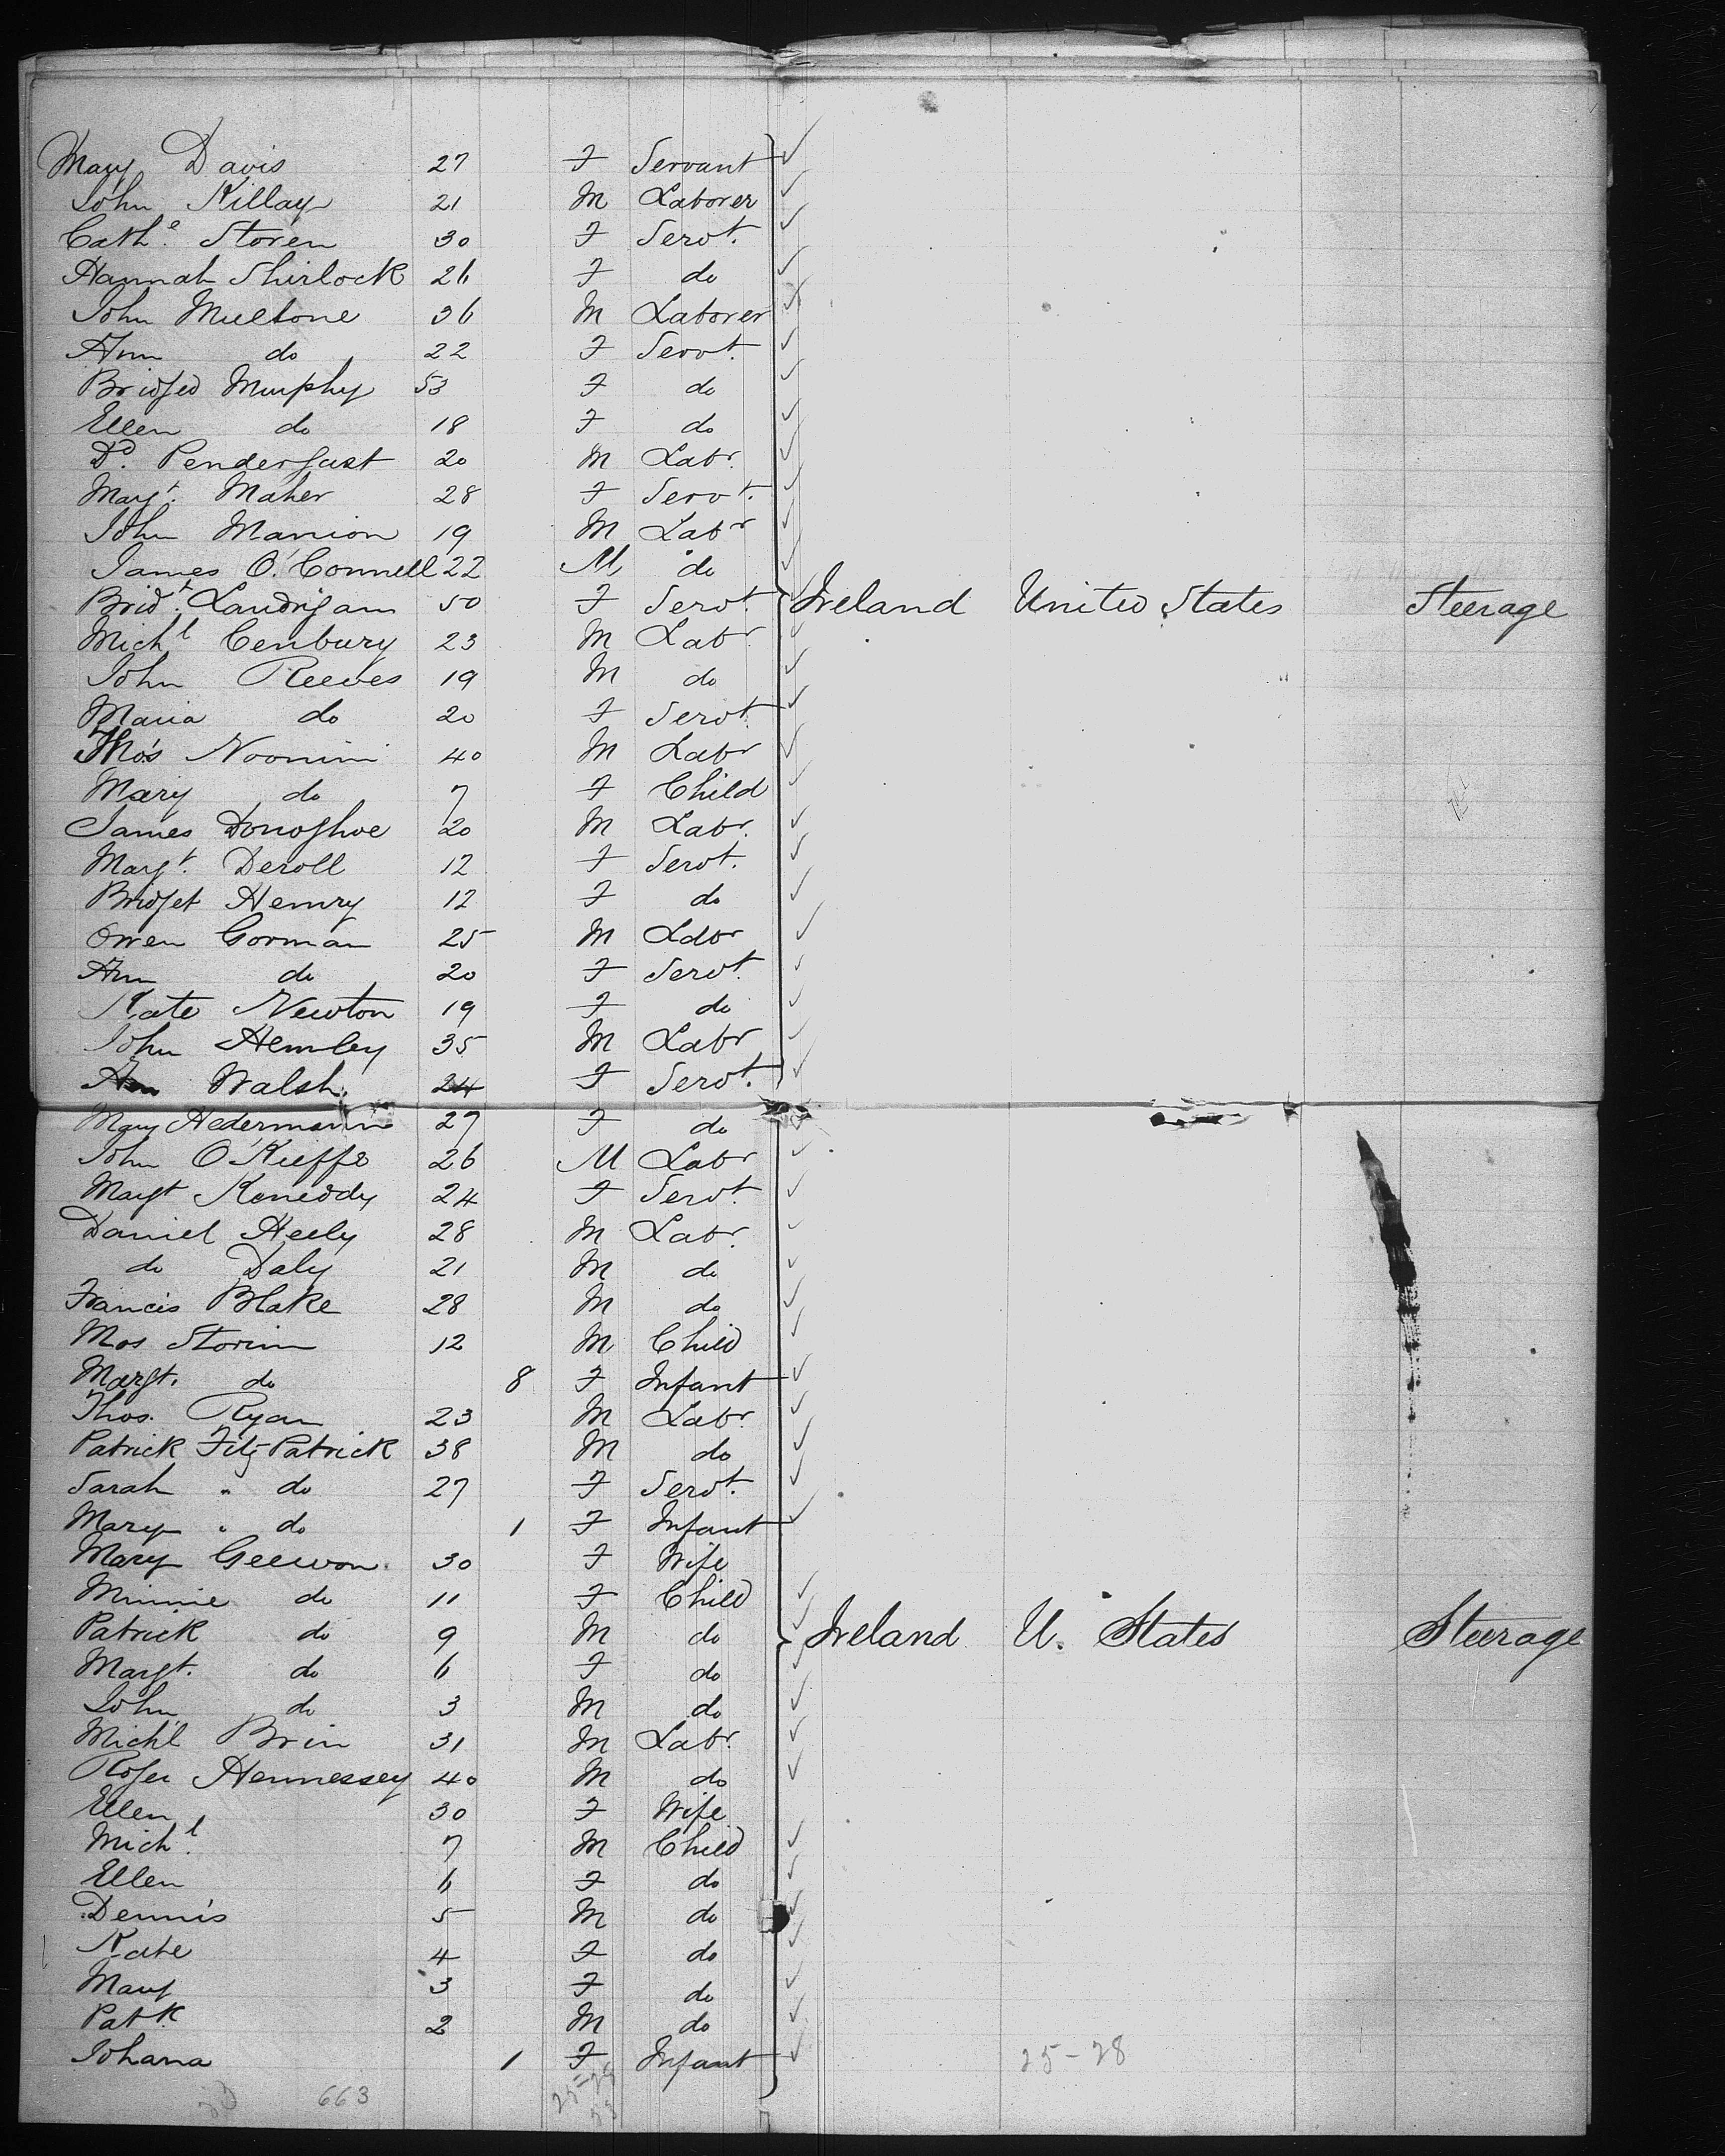 Mary Davis 27 F Servant
John Killay 21 M Laborer
Cathe Storen 30 F Servt.
Hannah Shirlock 26 F do
John Mueltone 36 M Laborer
Ann do 22 F Servt.
Bridged Murphy 53 F do
Ellen do 18 F do
Dd. Pendergast 20 M Labr.
Margt. Maher 28 F Servt.
John Manion 19 M Labr
James O'Connell 22 M do
Bridt. Landrigam 50 F Servt. Ireland United States Steerage
Michl Cenbury 23 M Labr
John Reeves 19 M do
Maria do 20 F Servt.
Thos Noonini 40 M Labr
Mary do 7 F Child
James Donoghoe 20 M Labr.
Margt. Deroll 12 F Servt.
Bridget Henry 12 F do
Owen Gorman 25 M Labr
Ann do 20 F Servt.
Kate Newton 19 F do
John Hemley 35 M Labr
Ann Walsh 24 F Servt.
Mary Hedermann 27 F do
John O'Kieffe 26 M Labr
Margt Keneddy 24 F Servt.
Daniel Heely 28 M Labr.
do Daly 21 M do
Francis Blake 28 M do
Mos Storin 12 M Child
Margt. do 8 F Infant
Thos. Ryan 23 M Labr.
Patrick Fitz Patrick 38 M do
Sarah " do 27 F Servt.
Mary " do 1 F Infant
Mary Geewon 30 F Wife
Minnie do 11 F Child
Patrick do 9 M do Ireland U. States Steerage
Margt. do 6 F do
John do 3 M do
Michl Brin 31 M Labr.
Roger Hennessey 40 M do
Ellen 30 F Wife
Michl 7 M Child
Ellen 6 F do
Dennis 5 M do
Kate 4 F do
Mary 3 F do
Patk 2 M do
Johana 1 F Infant
25-28
663